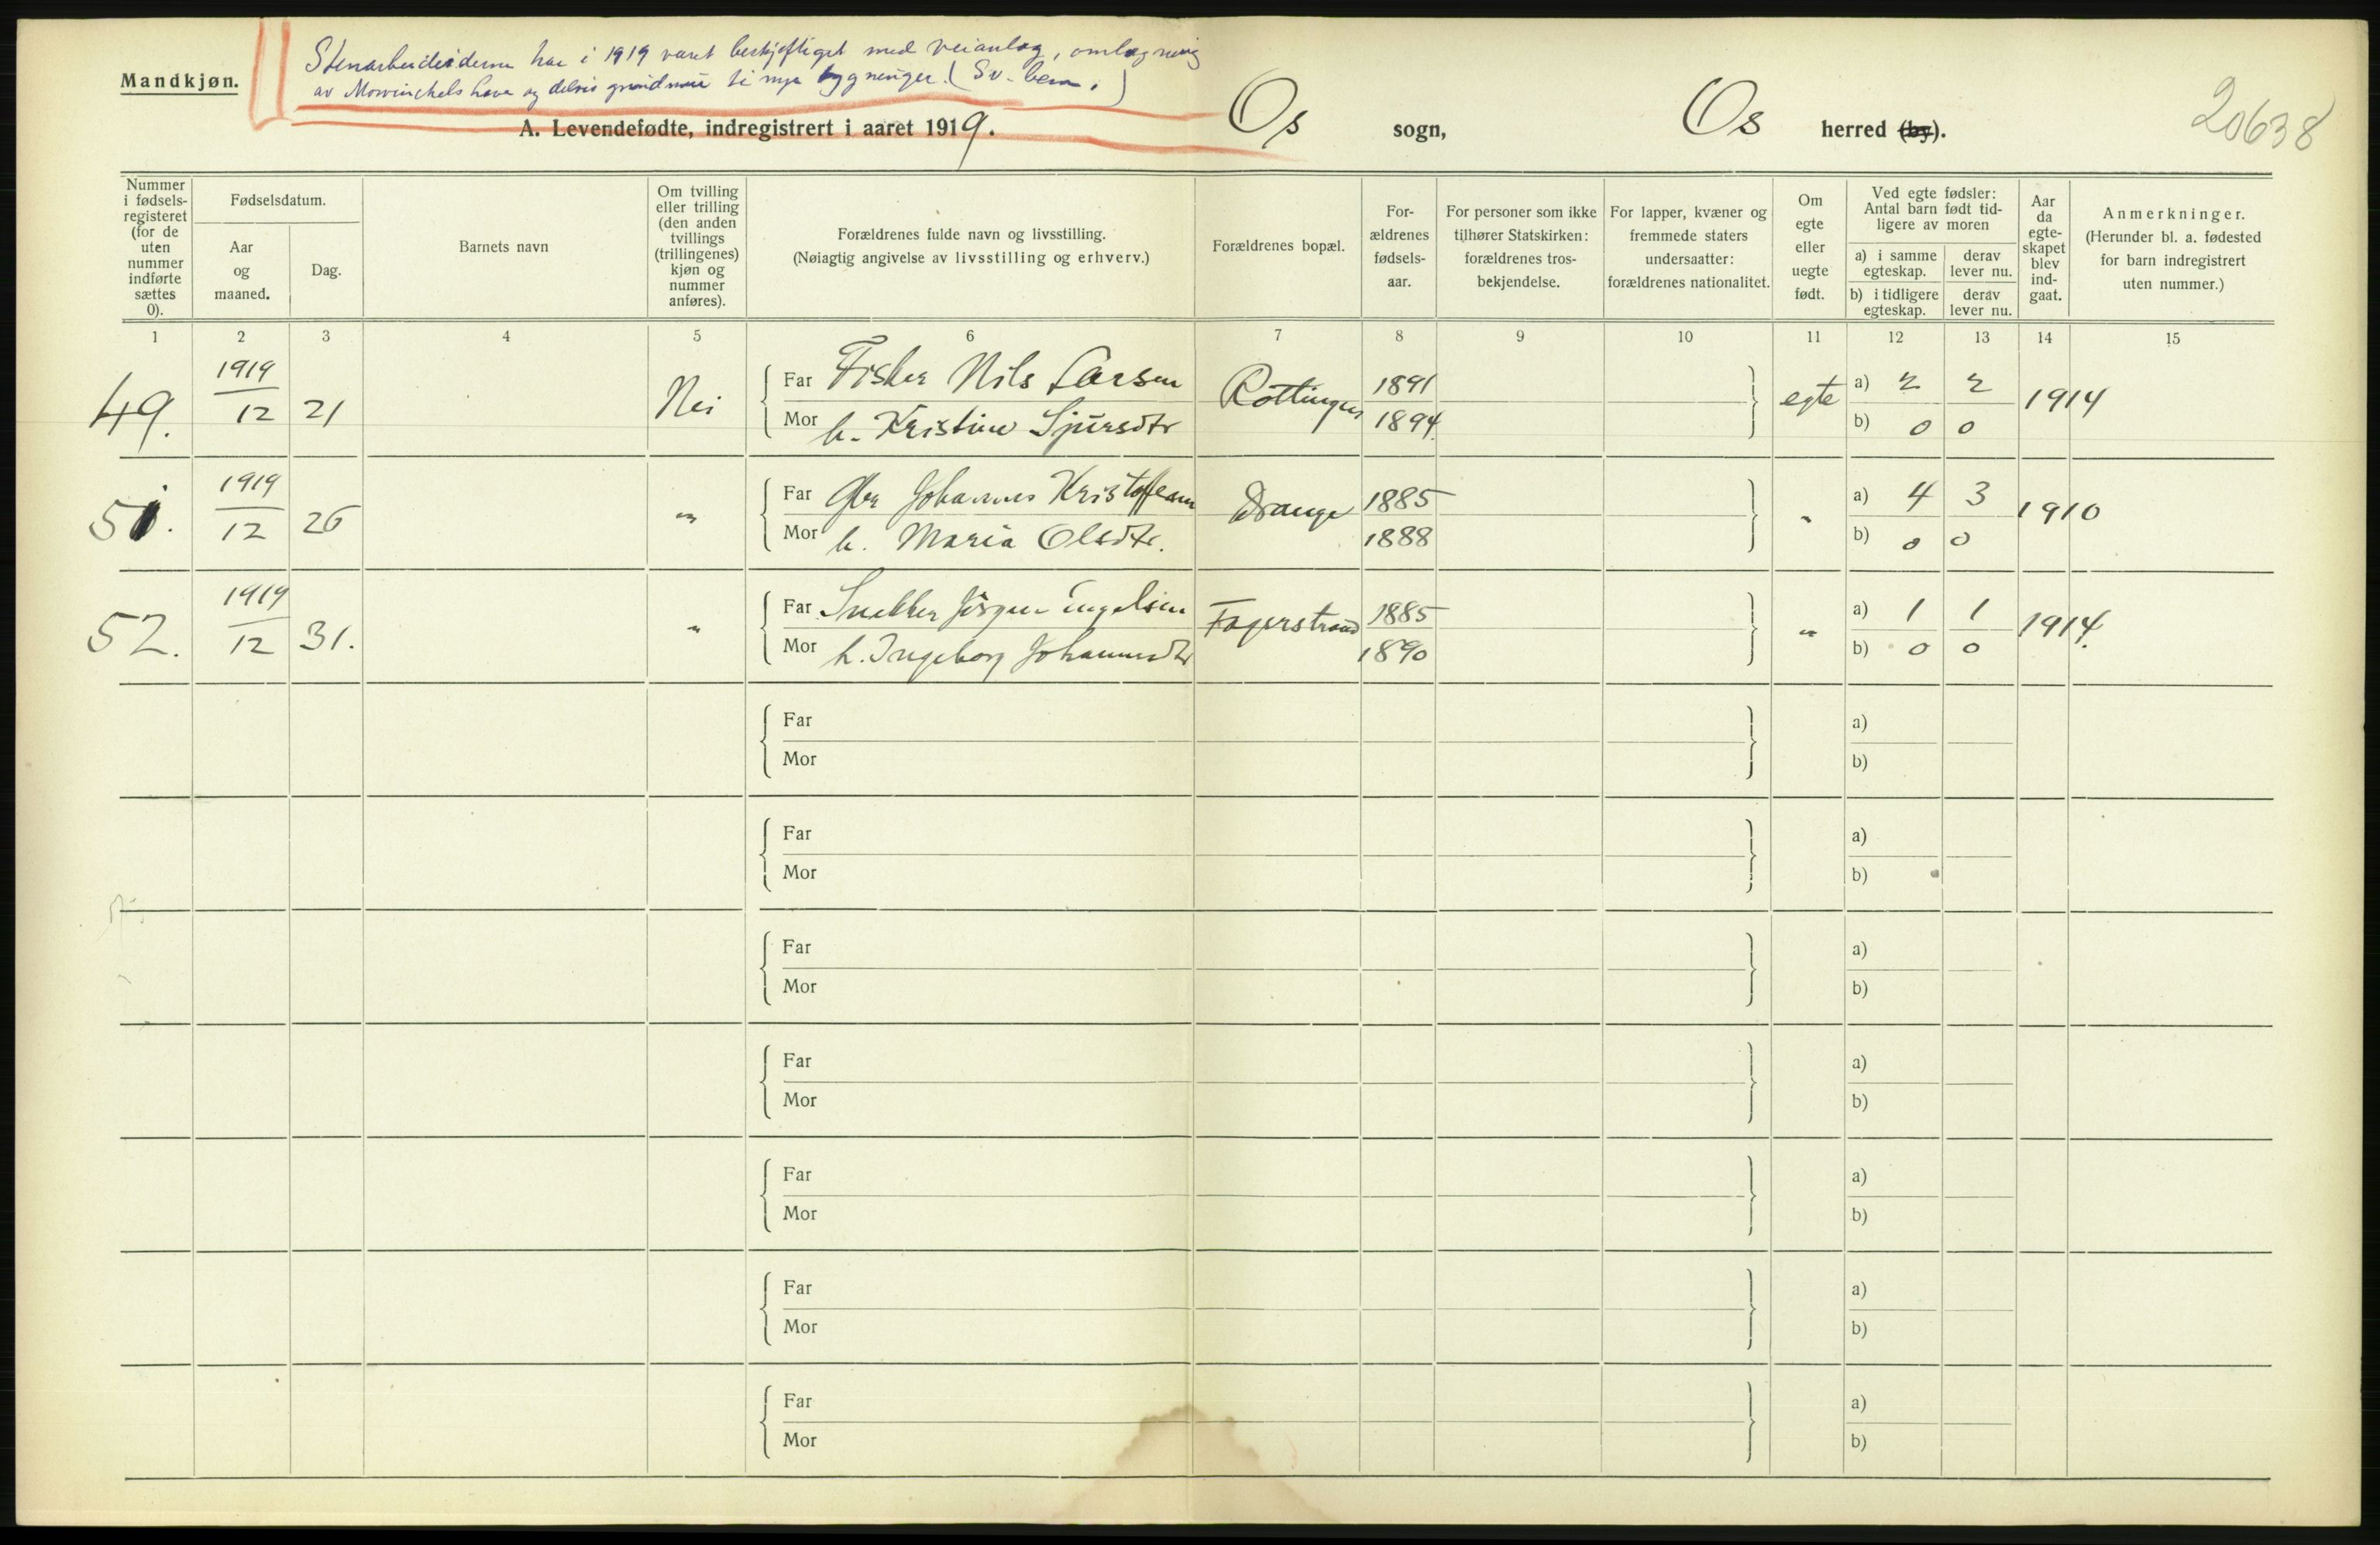 Mandkjøn.
har i 1919 været beskjeftiget med veianlæg, omlægning
av Mowinckels have og delvis grundmur til nye bygninger. (Sv.
A. Levendefødte, indregistrert i aaret 1919.
Os sogn,
Os herred (by).
20638
Nummer
i fødsels-
registeret
(for de
uten
nummer
indførte
sættes
0).
Fødselsdatum.
Aar
og
maaned.
Dag.
Barnets navn
Om tvilling
eller trilling
(den anden
tvillings
(trillingenes)
kjøn og
nummer
anføres).
Forældrenes fulde navn og livsstilling.
(Nøiagtig angivelse av livsstilling og erhverv.)
Forældrenes bopæl.
For-
ældrenes
fødsels-
aar.
For personer som ikke
tilhører Statskirken:
forældrenes tros-
bekjendelse.
For lapper, kvæner og
fremmede staters
undersaatter:
forældrenes nationalitet.
Om
egte
eller
uegte
født.
Ved egte fødsler:
Antal barn født tid-
ligere av moren
a) i samme
egteskap.
derav
lever nu.
b) i tidligere
egteskap.
derav
lever nu.
Aar
da
egte-
skapet
blev
ind-
gaat.
Anmerkninger.
(Herunder bl. a. fødested
for barn indregistrert
uten nummer.)
1 2 3 4 5 6 7 8 9 10 11 12 13 14 15
49. 1919 12 21 Nei
Far Fisker Nils Larsen Røttingen 1891 egte a) 2 2 1914
Mor h. Kristine Sjursdtr 1894 b) 0 0
51. 1919 12 26 "
Far Johannes Drange 1885 " a) 4 3 1910
Mor h. Maria Olsdtr. 1888 b) 0 0
52. 1919 12 31. "
Far Snekker Jørgen Engelsen Fagerstrand 1885 " a) 1 1 1914.
Mor h. Ingeborg Johannesdtr 1890 b) 0 0
Far a)
Mor b)
Far a)
Mor b)
Far a)
Mor b)
Far a)
Mor b)
Far a)
Mor b)
Far a)
Mor b)
Far a)
Mor b)